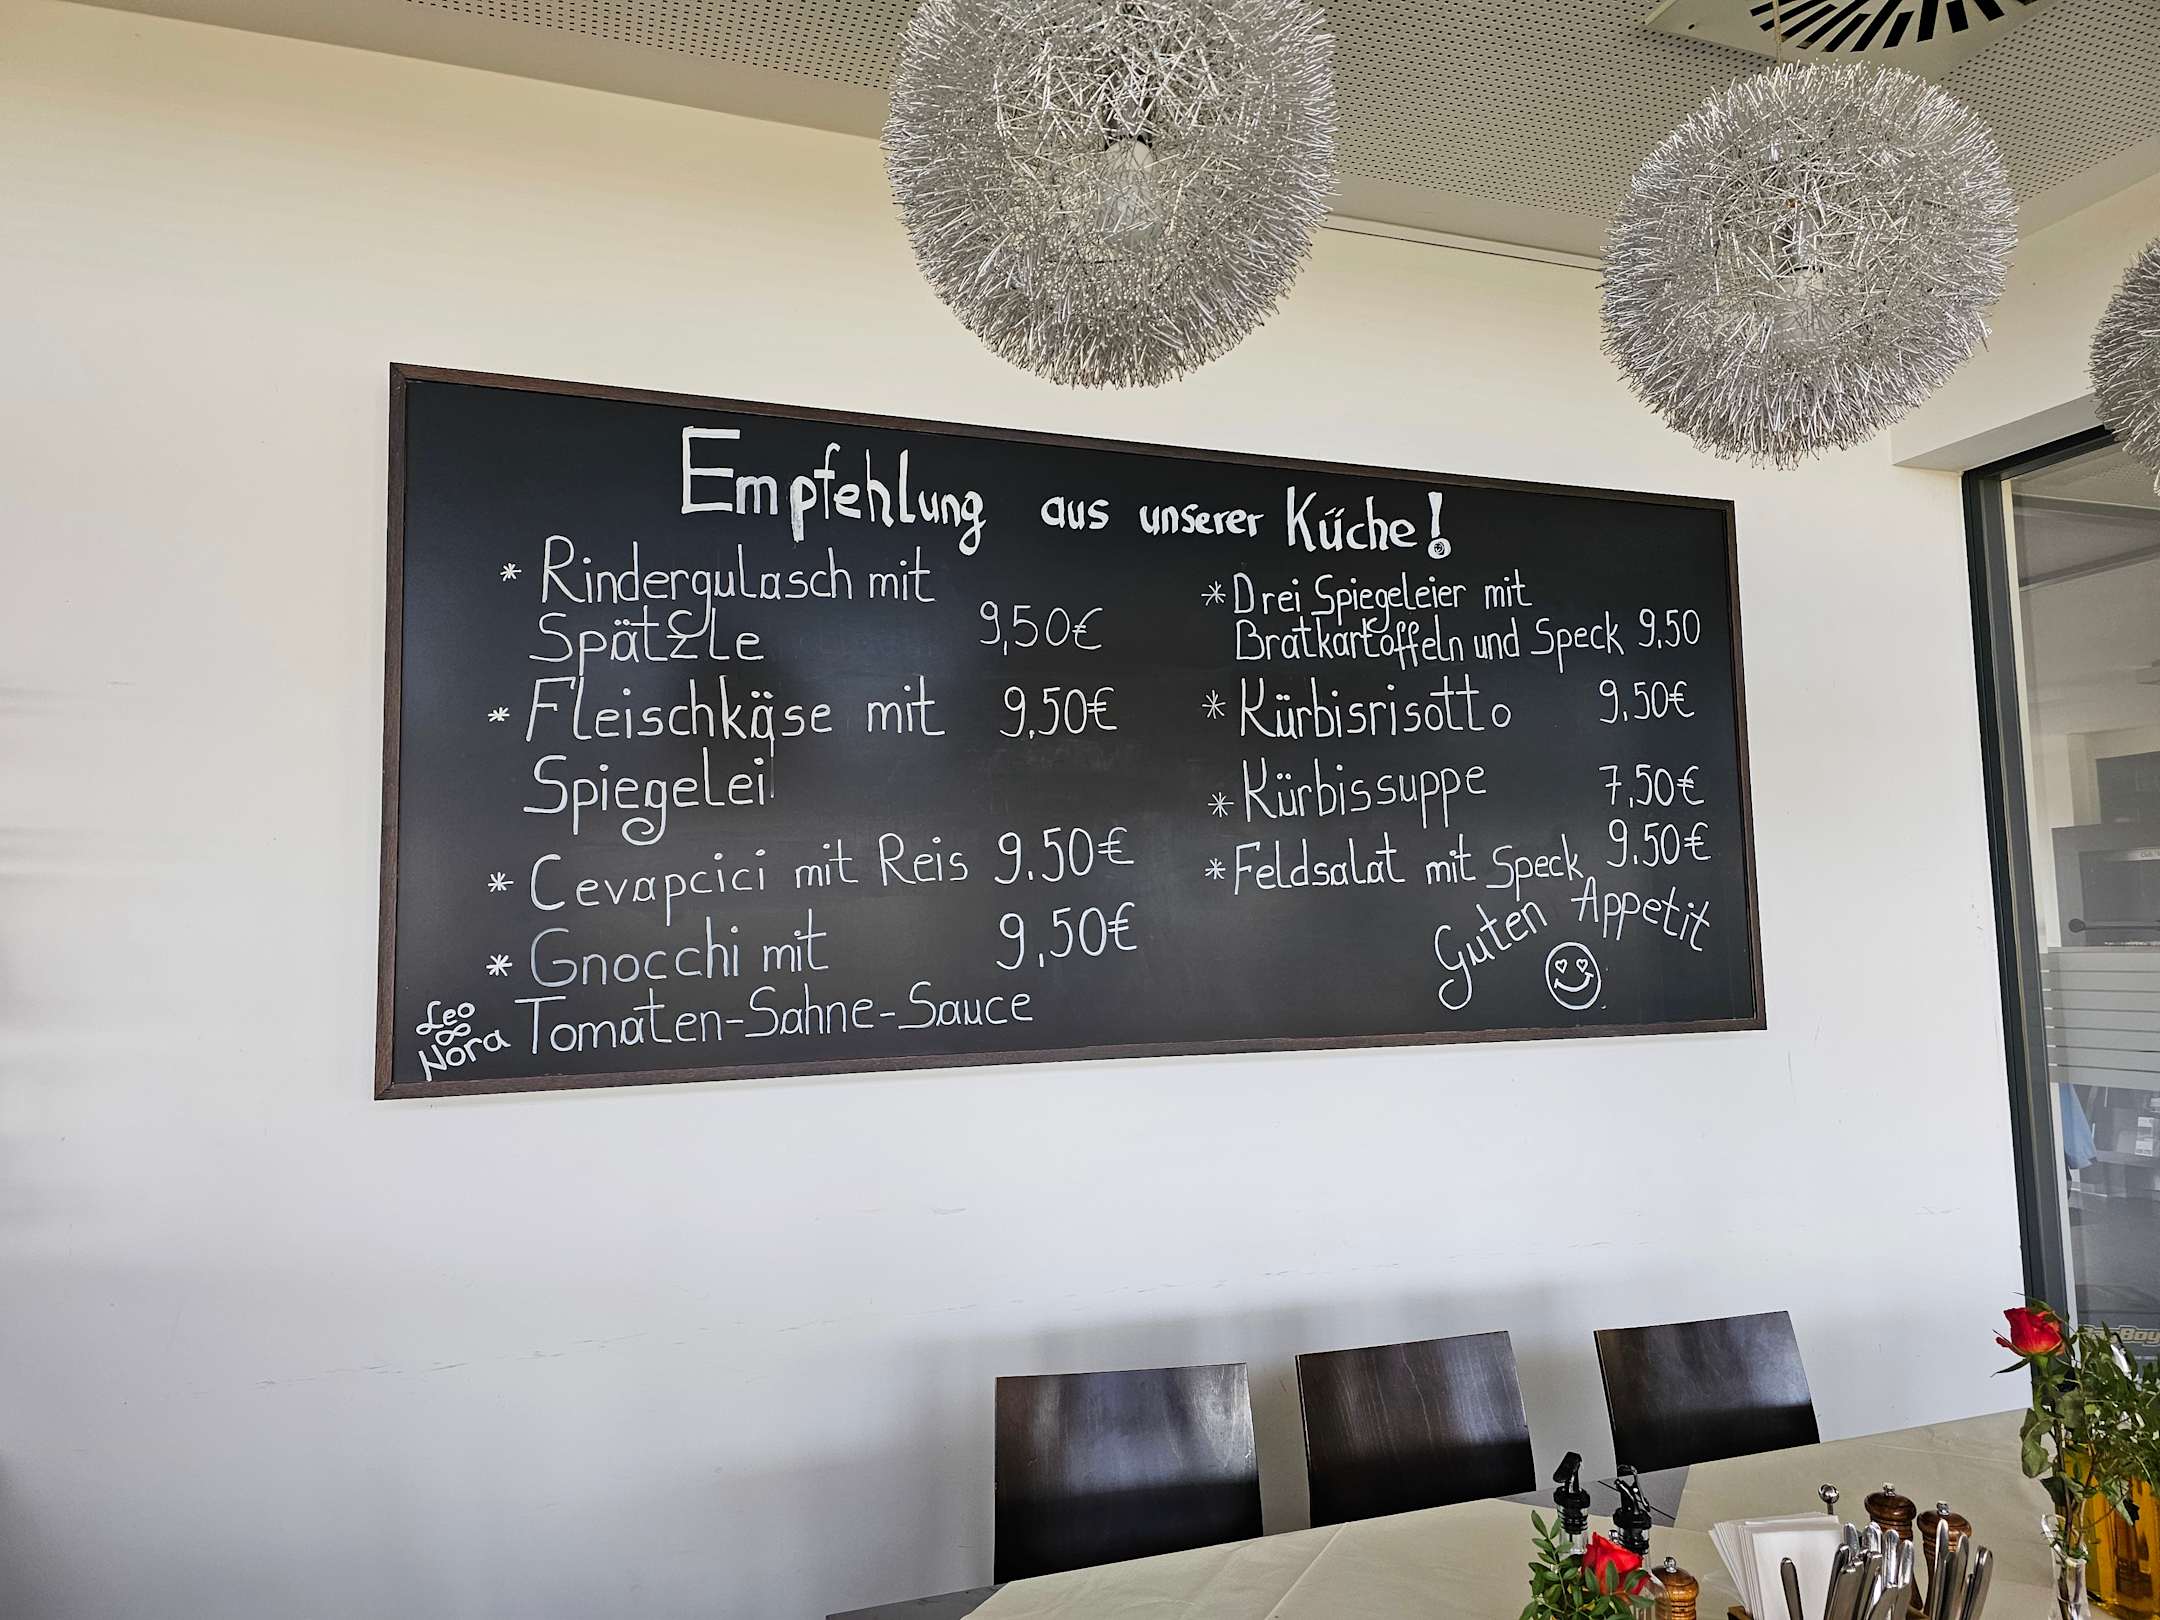 Empfehlung aus unserer Küche!
* Rindergulasch mit
Spätzle 9,50€
* Fleischkäse mit 9.50€
Spiegelei
* Cevapcici mit Reis 9.50€
* Gnocchi mit 9,50€
Tomaten-Sahne-Sauce
Leo
∞
Nora
* Drei Spiegeleier mit
Bratkartoffeln und Speck 9,50
* Kürbisrisotto 9.50€
* Kürbissuppe 7,50€
* Feldsalat mit Speck 9.50€
Guten Appetit